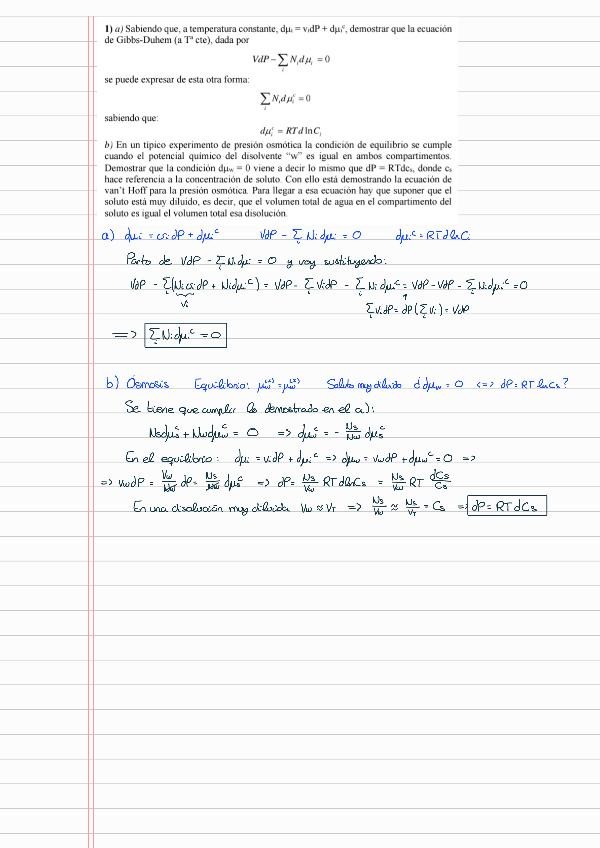 1) a) Sabiendo que, a temperatura constante, dμᵢ = vᵢdP + dμᵢᶜ, demostrar que la ecuación
de Gibbs-Duhem (a Tª cte), dada por
VdP − ∑ᵢ Nᵢdμᵢ = 0
se puede expresar de esta otra forma:
∑ᵢ Nᵢdμᵢᶜ = 0
sabiendo que:
dμᵢᶜ = RTd ln Cᵢ
b) En un típico experimento de presión osmótica la condición de equilibrio se cumple
cuando el potencial químico del disolvente “w” es igual en ambos compartimentos.
Demostrar que la condición dμw = 0 viene a decir lo mismo que dP = RTdcₛ, donde cₛ
hace referencia a la concentración de soluto. Con ello está demostrando la ecuación de
van’t Hoff para la presión osmótica. Para llegar a esa ecuación hay que suponer que el
soluto está muy diluido, es decir, que el volumen total de agua en el compartimento del
soluto es igual el volumen total esa disolución.
a) dμᵢ = vᵢdP + dμᵢᶜ VdP − ∑ᵢ Nᵢdμᵢ = 0 dμᵢᶜ = RTdlnCᵢ
Parto de VdP − ∑ᵢ Nᵢdμᵢ = 0 y voy sustituyendo:
VdP − ∑ᵢ(NᵢvᵢdP + Nᵢdμᵢᶜ) = VdP − ∑ᵢ VᵢdP − ∑ᵢ Nᵢdμᵢᶜ = VdP − VdP − ∑ᵢ Nᵢdμᵢᶜ = 0
Vᵢ ∑ᵢ VᵢdP = dP(∑ᵢ Vᵢ) = VdP
=> ∑ᵢ Nᵢdμᵢᶜ = 0
b) Ósmosis Equilibrio: μw⁽¹⁾ = μw⁽²⁾ Soluto muy diluido ¿dμw = 0 <=> dP = RT lnCs?
Se tiene que cumplir lo demostrado en el a):
Nsdμsᶜ + Nwdμwᶜ = 0 => dμwᶜ = − Ns/Nw dμsᶜ
En el equilibrio: dμᵢ = vᵢdP + dμᵢᶜ => dμw = vwdP + dμwᶜ = 0 =>
=> vwdP = Vw/Nw dP = Ns/Nw dμsᶜ => dP = Ns/Vw RT dlnCs = Ns/Vw RT dCs/Cs
En una disolución muy diluida Vw ≈ VT => Ns/Vw ≈ Ns/VT = Cs => dP = RT dCs